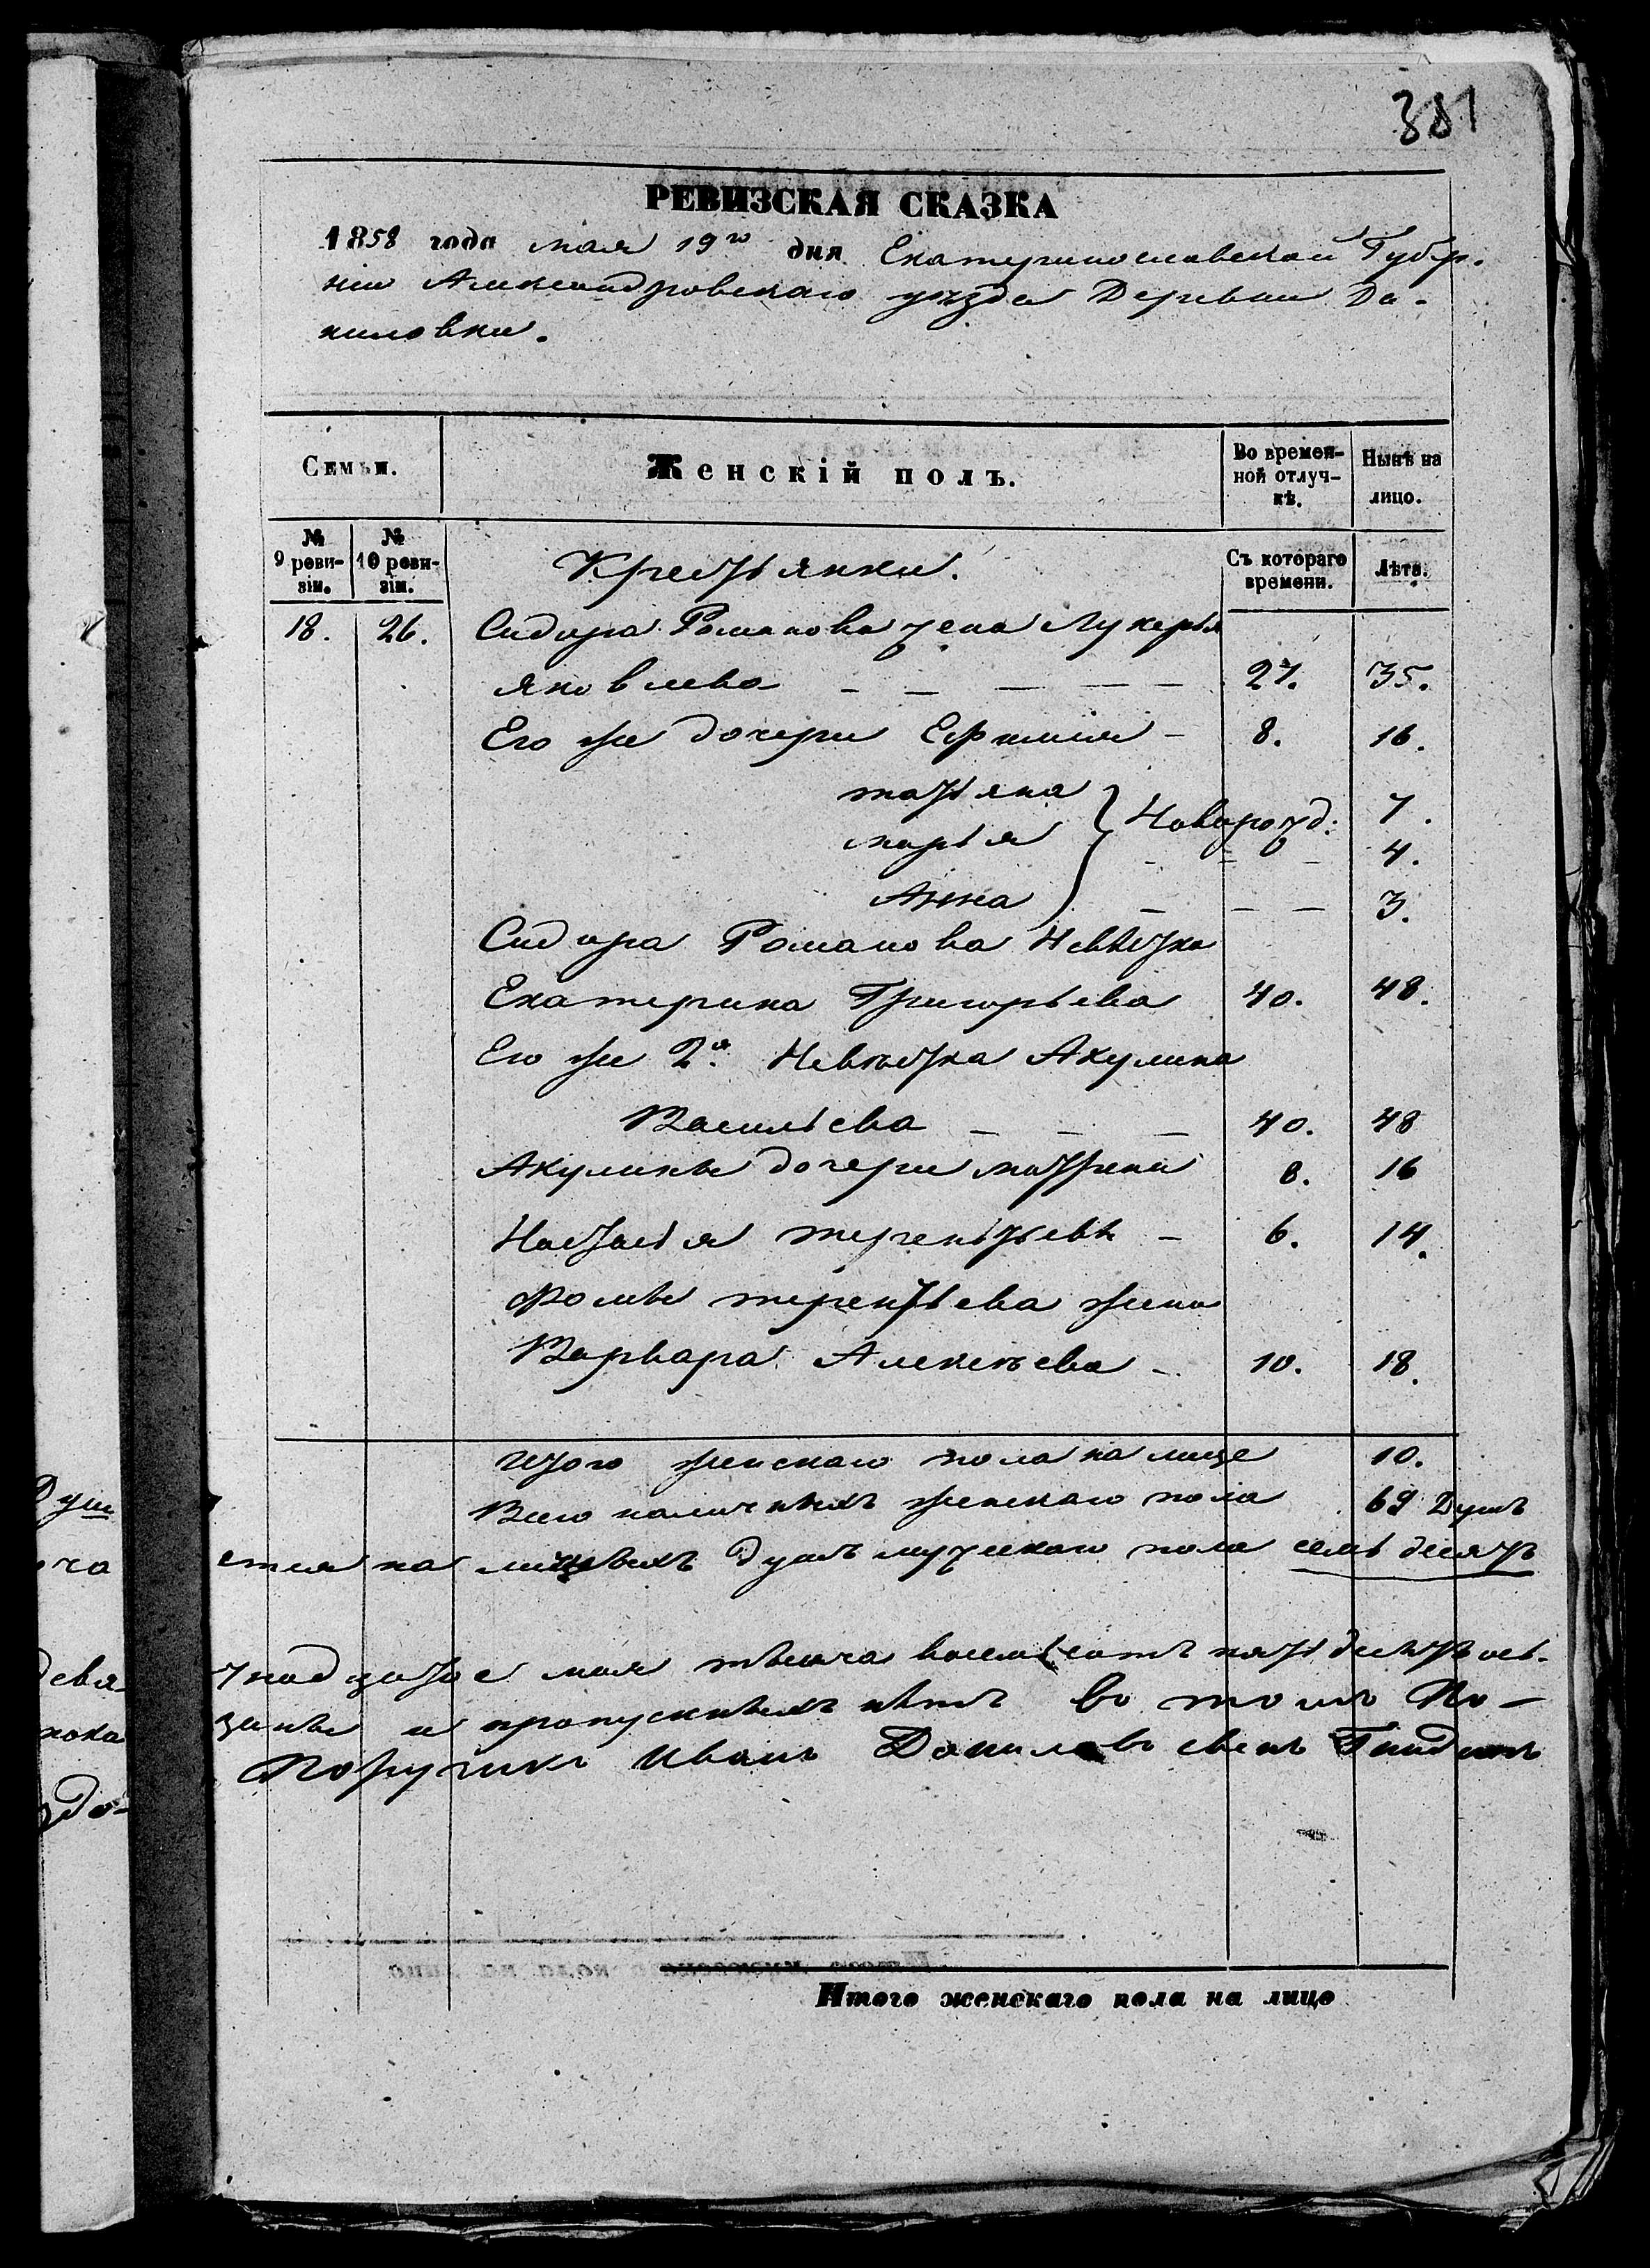 381
РЕВИЗСКАЯ СКАЗКА
1858 года мая 19го дня Екатеринославской Губер-
ніи Александровскаго уѣзда Деревни Да-
ниловки.
Семьи. Женскій полъ. Во времен-ной отлуч-кѣ. Нынѣ на лицо.
№ 9 реви-зіи. № 10 реви-зіи. Крестьянки. Съ котораго времени. Лѣта.
18. 26. Сидора Романова жена Лукерья
Яковлева 27. 35.
Его же дочери Ефимия 8. 16.
татьяна 7.
марья } Новорожд: 4.
Анна 3.
Сидора Романова Невѣстка
Екатерина Григорьева 40. 48.
Его же 2я Невѣстка Акулина
Васильева 40. 48
Акулины дочери 8. 16
Настасья терентьевы 6. 14.
Фомы терентьева жена
Варвара Алексѣева 10. 18.
Итого женскаго пола на лице 10.
Всего наличныхъ женскаго пола 69 Душъ
Душ
ча ется на лицевыхъ душъ мужескаго пола семь десятъ
девя тнадцатое мая тысяча восемьсотъ пятьдесятъ ось-
заны и пропускныхъ нѣтъ во томъ По-
Порутчикъ Иванъ Даниловъ сынъ
Итого женскаго пола на лицо